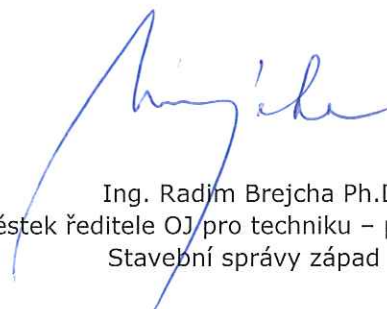 Ing. Radim Brejcha Ph.D
ěstek ředitele OJ pro techniku – p
Stavební správy západ